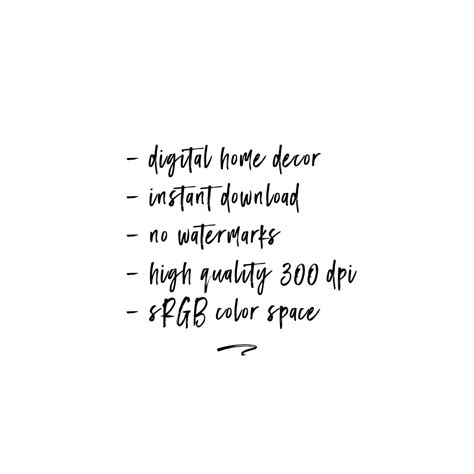 - digital home decor
- instant download
- no watermarks
- high quality 300 dpi
- sRGB color space